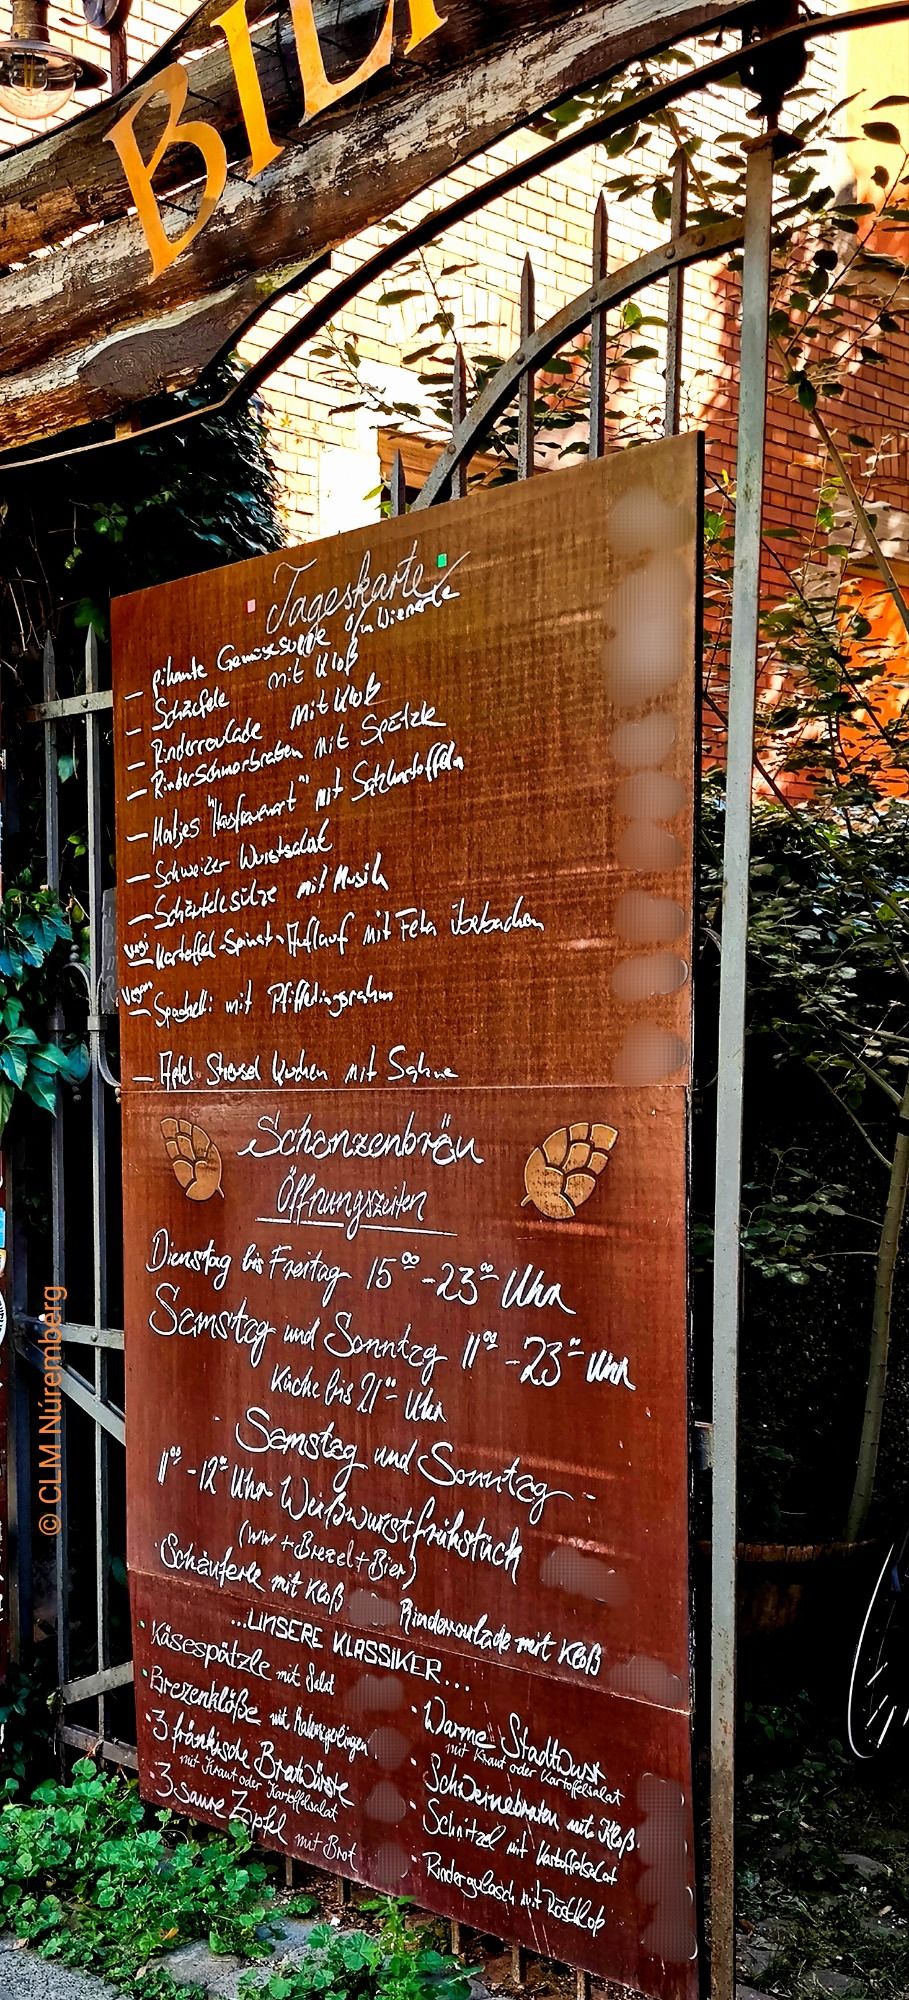 BIER
Tageskarte
– pikante Gemüsesuppe o/m Wienerle
– Schäufele mit Kloß
– Rinderroulade mit Kloß
– Rinderschmorbraten mit Spätzle
– Matjes "Hausfrauenart" mit Salzkartoffeln
– Schweizer Wurstsalat
– Schäufelesülze mit Musik
vegi – Kartoffel-Spinat-Auflauf mit Feta überbacken
Vegan – Spaghetti mit Pfifferlingsrahm
– Apfel Streusel Kuchen mit Sahne
Schanzenbräu
Öffnungszeiten
Dienstag bis Freitag 15°° - 23°° Uhr
Samstag und Sonntag 11°° - 23°° Uhr
Küche bis 21°° Uhr
- Samstag und Sonntag -
11°° - 12°° Uhr Weißwurstfrühstück
(ww + Brezel + Bier)
· Schäuferle mit Kloß Rinderroulade mit Kloß
...UNSERE KLASSIKER...
· Käsespätzle mit Salat
· Brezenklöße mit
· 3 fränkische Bratwürste
mit Kraut oder Kartoffelsalat
· 3 Saure Zipfel mit Brot
· Warme Stadtwurst
mit Kraut oder Kartoffelsalat
· Schweinebraten mit Kloß
· Schnitzel mit Kartoffelsalat
· Rindergulasch mit Röstkloß
© CLM Núremberg